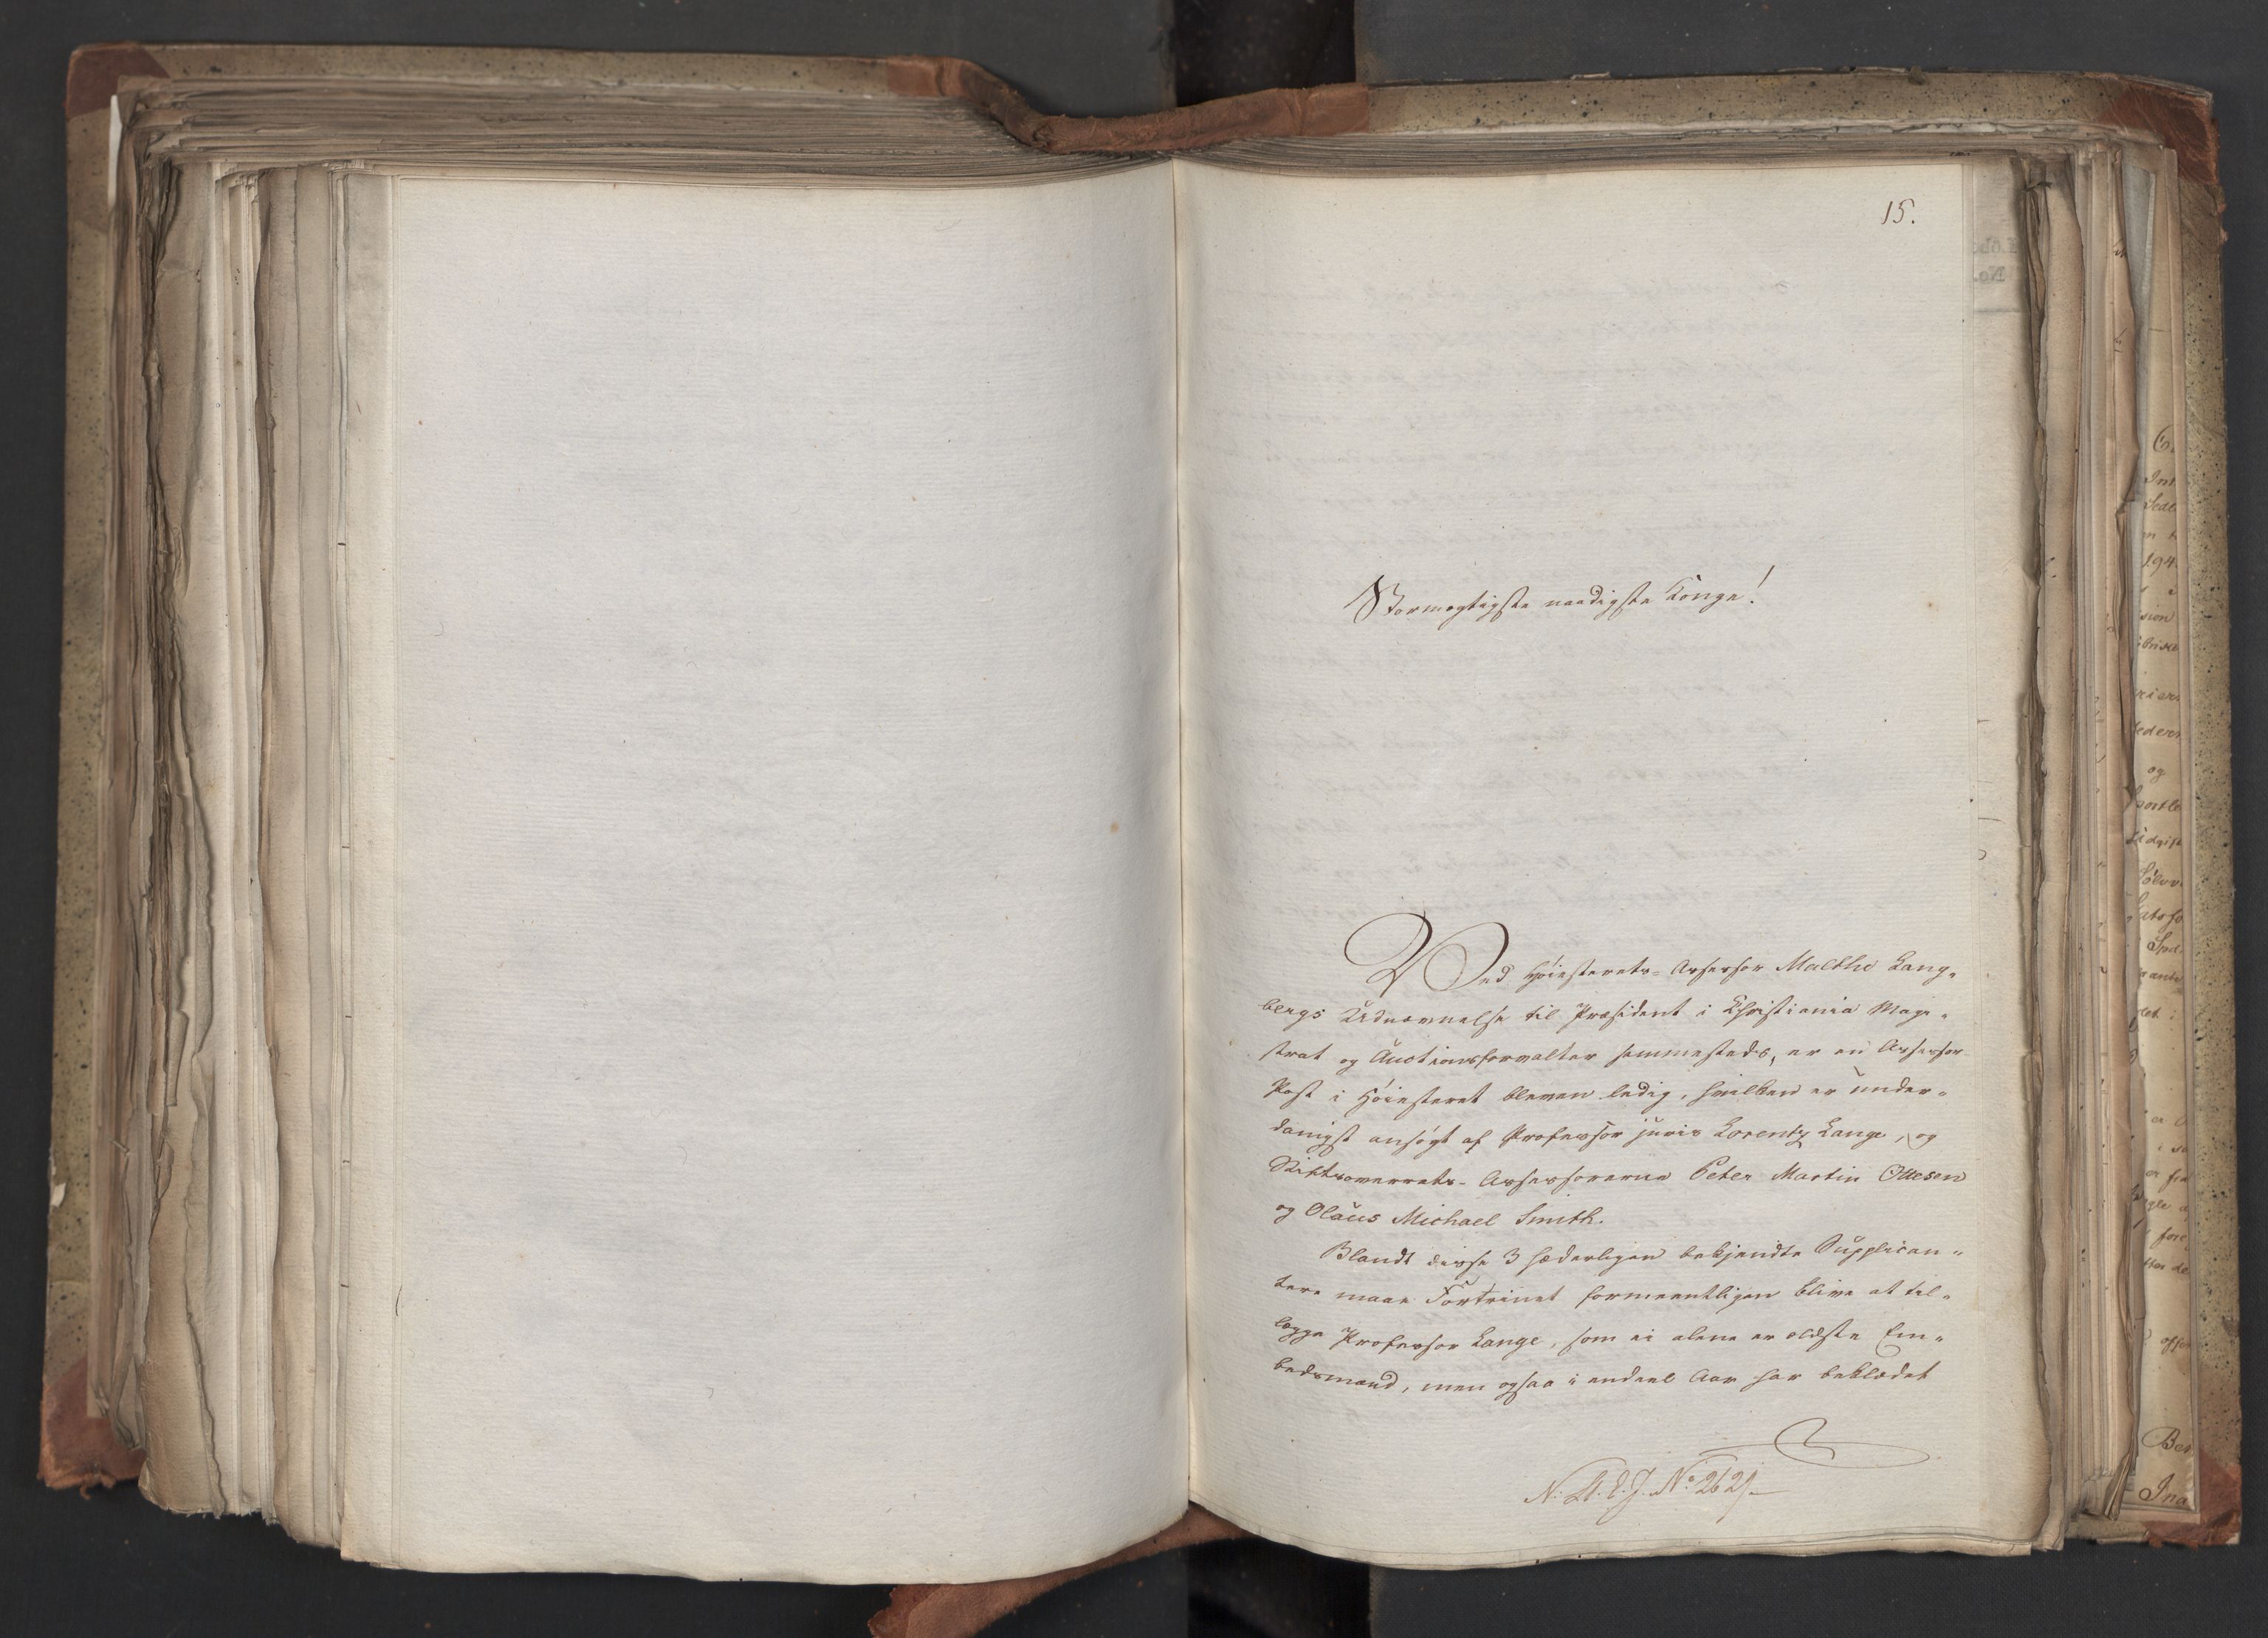 15.
Stormægtigste naadigste Konge!
Ved Høiesterets-Assessor Malthe Lang-
bergs Udnævnelse til Præsident i Christiania Magi-
strat og Auctionsforvalter sammesteds, er en Assessor-
Post i Høiesteret bleven ledig, hvilken er under-
danigst ansøgt af Professor juris Lorentz Lange, og
Stiftsoverrets-Assessorerne Peter Martin Ottesen
og Olaus Michael Smith.
Blandt disse 3 hæderligen bekjendte Supplican-
tere maae Fortrinet formeentligen blive at til-
lægge Professor Lange, som ei alene er ældste Em-
bedsmand, men ogsaa i endeel Aar har beklædet